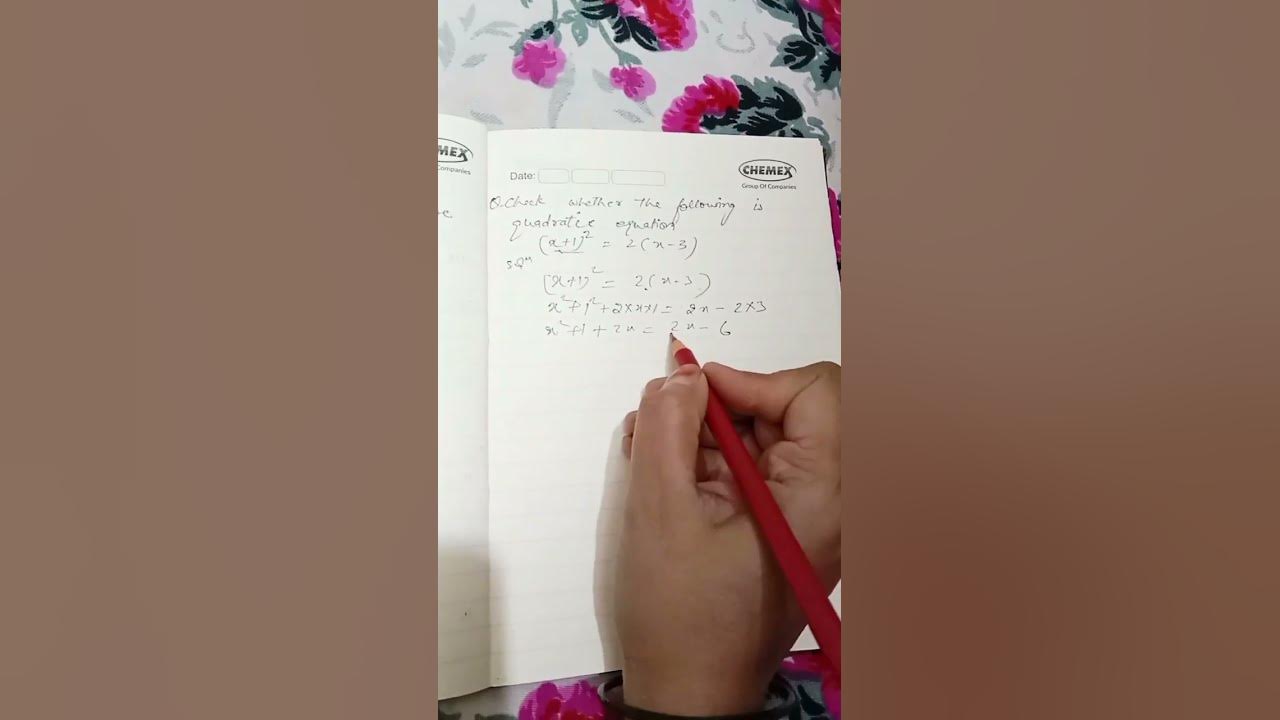 MEX
Companies
CHEMEX
Group Of Companies
Date:
Q. Check whether the following is
quadratic equation
(x+1)² = 2(x-3)
Solⁿ
(x+1)² = 2(x-3)
x²+1²+2×x×1 = 2x - 2×3
x²+1+2x = 2x-6